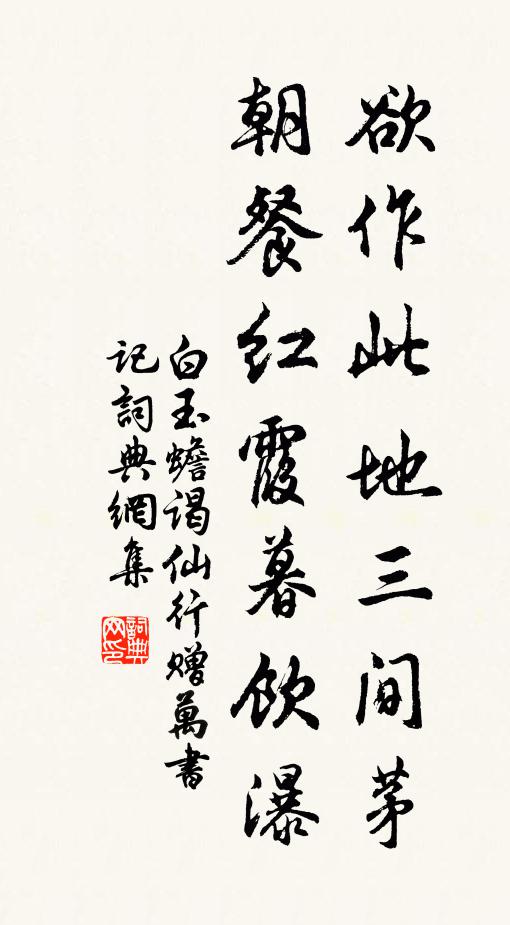 欲作此地三间茅
朝餐红霞暮饮瀑
白玉蟾谒仙行赠萬書
记詞典網集
詞典网印